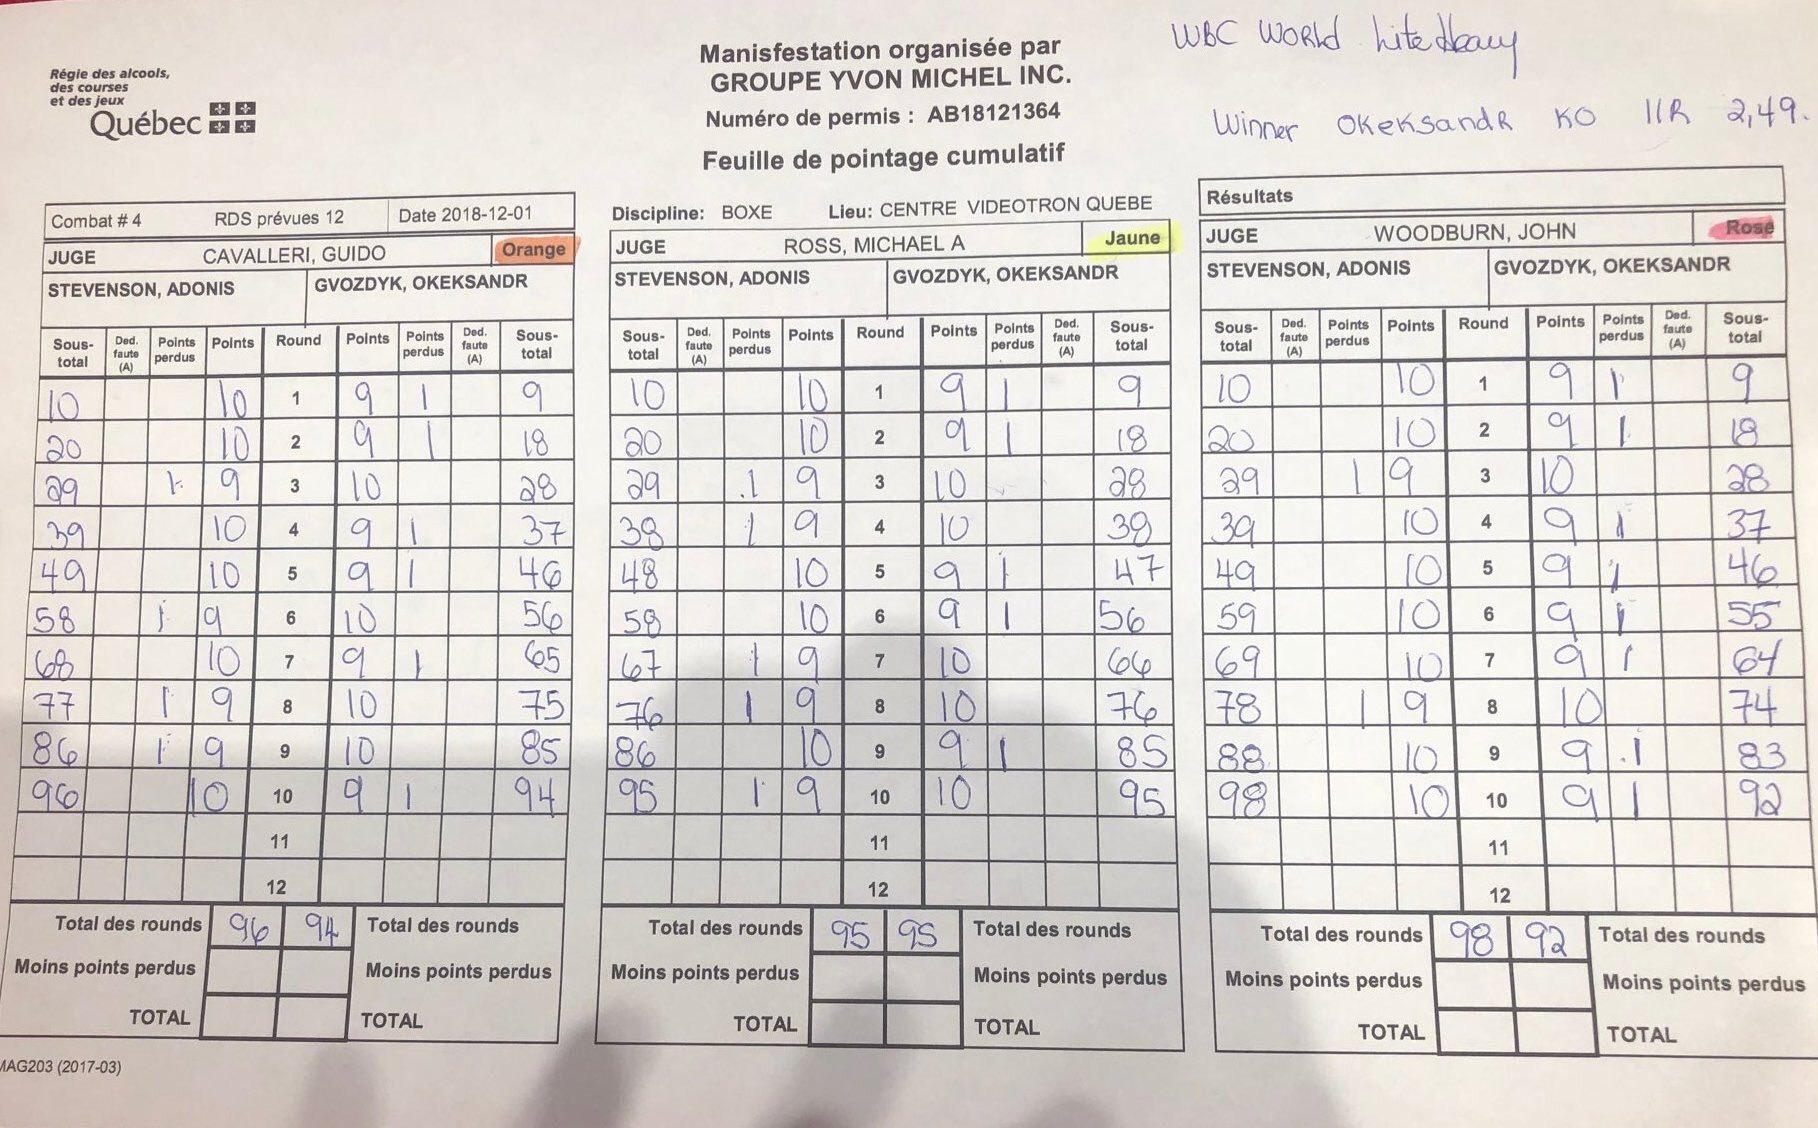 WBC World Lite Heavy
Winner OKeKsandR KO 11R 2,49.
Régie des alcools,
des courses
et des jeux
Québec
Manisfestation organisée par
GROUPE YVON MICHEL INC.
Numéro de permis : AB18121364
Feuille de pointage cumulatif
Combat # 4 RDS prévues 12 Date 2018-12-01
JUGE CAVALLERI, GUIDO Orange
STEVENSON, ADONIS GVOZDYK, OKEKSANDR
Sous-total Ded. faute (A) Points perdus Points Round Points Points perdus Ded. faute (A) Sous-total
10 10 1 9 1 9
20 10 2 9 1 18
29 1 9 3 10 28
39 10 4 9 1 37
49 10 5 9 1 46
58 1 9 6 10 56
68 10 7 9 1 65
77 1 9 8 10 75
86 1 9 9 10 85
96 10 10 9 1 94
11
12
Total des rounds 96 94 Total des rounds
Moins points perdus Moins points perdus
TOTAL TOTAL
MAG203 (2017-03)
Discipline: BOXE Lieu: CENTRE VIDEOTRON QUEBE
JUGE ROSS, MICHAEL A Jaune
STEVENSON, ADONIS GVOZDYK, OKEKSANDR
Sous-total Ded. faute (A) Points perdus Points Round Points Points perdus Ded. faute (A) Sous-total
10 10 1 9 1 9
20 10 2 9 1 18
29 .1 9 3 10 28
38 1 9 4 10 38
48 10 5 9 1 47
58 10 6 9 1 56
67 1 9 7 10 66
76 1 9 8 10 76
86 10 9 9 1 85
95 1 9 10 10 95
11
12
Total des rounds 95 95 Total des rounds
Moins points perdus Moins points perdus
TOTAL TOTAL
Résultats
JUGE WOODBURN, JOHN Rose
STEVENSON, ADONIS GVOZDYK, OKEKSANDR
Sous-total Ded. faute (A) Points perdus Points Round Points Points perdus Ded. faute (A) Sous-total
10 10 1 9 1 9
20 10 2 9 1 18
29 1 9 3 10 28
39 10 4 9 1 37
49 10 5 9 1 46
59 10 6 9 1 55
69 10 7 9 1 64
78 1 9 8 10 74
88 10 9 9 .1 83
98 10 10 9 1 92
11
12
Total des rounds 98 92 Total des rounds
Moins points perdus Moins points perdus
TOTAL TOTAL